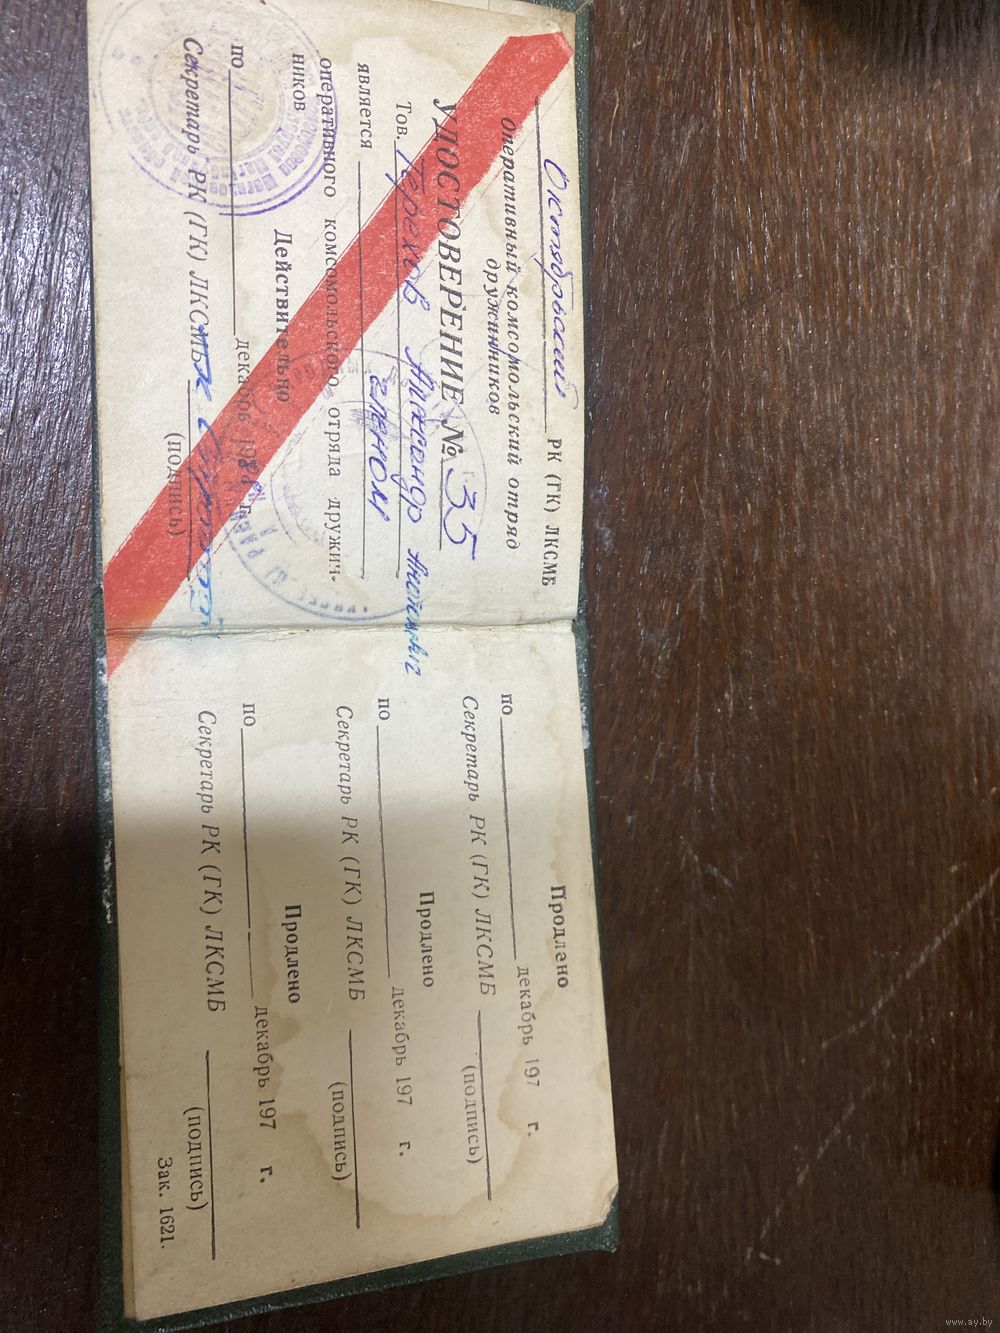 Октябрьский РК (ГК) ЛКСМБ
Оперативный комсомольский отряд
дружинников
УДОСТОВЕРЕНИЕ № 35
Тов. Терехов
является членом
оперативного комсомольского отряда дружин-
ников
Действительно
по декабрь 198 г.
Секретарь РК (ГК) ЛКСМБ
(подпись)
Продлено
по декабрь 197 г.
Секретарь РК (ГК) ЛКСМБ
(подпись)
Продлено
по декабрь 197 г.
Секретарь РК (ГК) ЛКСМБ
(подпись)
Продлено
по декабрь 197 г.
Секретарь РК (ГК) ЛКСМБ
(подпись)
Зак. 1621.
www.ay.by